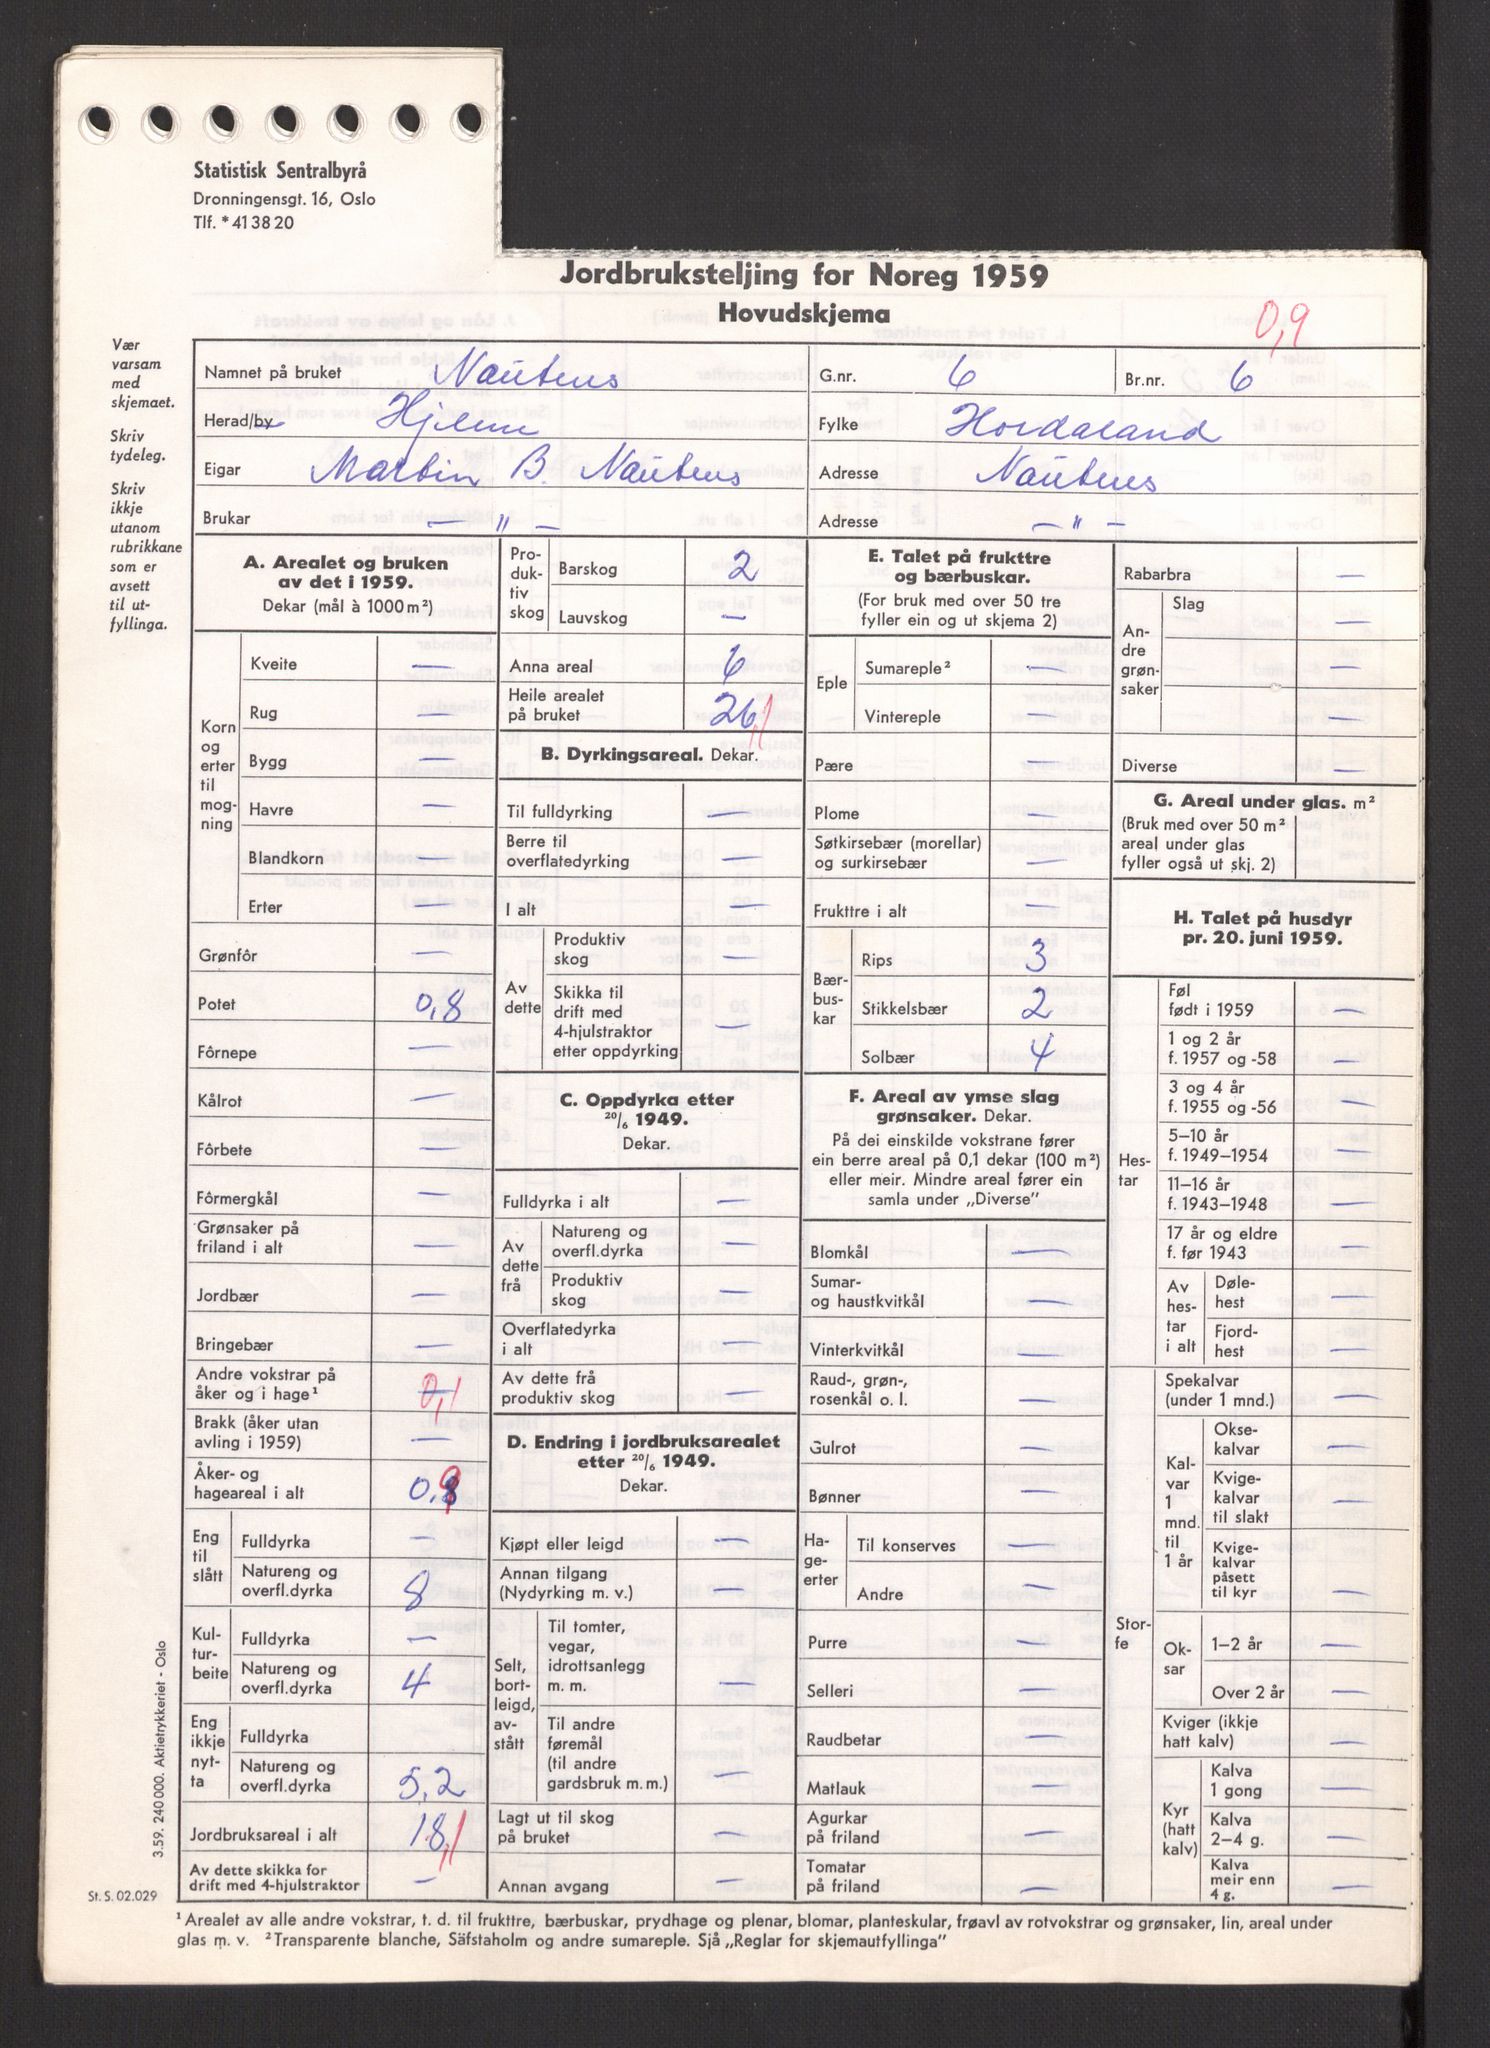 Statistisk Sentralbyrå
Dronningensgt. 16, Oslo
Tlf. *41 38 20
Jordbruksteljing for Noreg 1959
Hovudskjema
0,9
Vær
varsam
med
skjemaet.
Skriv
tydeleg.
Skriv
ikkje
utanom
rubrikkane
som er
avsett
til ut-
fyllinga.
Namnet på bruket Nautens G.nr. 6 Br.nr. 6
Herad/by Hjelme Fylke Hordaland
Eigar Martin B. Nautens Adresse Nautens
Brukar — " — Adresse — " —
A. Arealet og bruken
av det i 1959.
Dekar (mål à 1000 m²)
Korn
og
erter
til
mog-
ning
Kveite —
Rug —
Bygg —
Havre —
Blandkorn —
Erter —
Grønfôr —
Potet 0,8
Fôrnepe —
Kålrot —
Fôrbete —
Fôrmergkål —
Grønsaker på
friland i alt —
Jordbær —
Bringebær —
Andre vokstrar på
åker og i hage¹ 0,1
Brakk (åker utan
avling i 1959) —
Åker- og
hageareal i alt 0,9
Eng
til
slått
Fulldyrka —
Natureng og
overfl.dyrka 8
Kul-
tur-
beite
Fulldyrka —
Natureng og
overfl.dyrka 4
Eng
ikkje
nyt-
ta
Fulldyrka
Natureng og
overfl.dyrka 5,2
Jordbruksareal i alt 18,1
Av dette skikka for
drift med 4-hjulstraktor —
Pro-
duk-
tiv
skog
Barskog 2
Lauvskog —
Anna areal 6
Heile arealet
på bruket 26,1
B. Dyrkingsareal. Dekar.
Til fulldyrking —
Berre til
overflatedyrking —
I alt —
Av
dette
Produktiv
skog —
Skikka til
drift med
4-hjulstraktor
etter oppdyrking —
C. Oppdyrka etter
20/6 1949.
Dekar.
Fulldyrka i alt —
Av
dette
frå
Natureng og
overfl.dyrka —
Produktiv
skog —
Overflatedyrka
i alt —
Av dette frå
produktiv skog —
D. Endring i jordbruksarealet
etter 20/6 1949.
Dekar.
Kjøpt eller leigd —
Annan tilgang
(Nydyrking m. v.) —
Selt,
bort-
leigd,
av-
stått
Til tomter,
vegar,
idrottsanlegg
m. m. —
Til andre
føremål
(til andre
gardsbruk m. m.) —
Lagt ut til skog
på bruket —
Annan avgang —
E. Talet på frukttre
og bærbuskar.
(For bruk med over 50 tre
fyller ein og ut skjema 2)
Eple
Sumareple² —
Vintereple —
Pære —
Plome —
Søtkirsebær (morellar)
og surkirsebær —
Frukttre i alt —
Bær-
bus-
kar
Rips 3
Stikkelsbær 2
Solbær 4
F. Areal av ymse slag
grønsaker. Dekar.
På dei einskilde vokstrane fører
ein berre areal på 0,1 dekar (100 m²)
eller meir. Mindre areal fører ein
samla under „Diverse"
Blomkål —
Sumar-
og haustkvitkål —
Vinterkvitkål —
Raud-, grøn-,
rosenkål o. l. —
Gulrot —
Bønner —
Ha-
ge-
erter
Til konserves —
Andre —
Purre —
Selleri —
Raudbetar —
Matlauk —
Agurkar
på friland —
Tomatar
på friland —
Rabarbra —
An-
dre
grøn-
saker
Slag —
—
Diverse —
G. Areal under glas. m²
(Bruk med over 50 m²
areal under glas
fyller også ut skj. 2)
H. Talet på husdyr
pr. 20. juni 1959.
Hes-
tar
Føl
født i 1959 —
1 og 2 år
f. 1957 og -58 —
3 og 4 år
f. 1955 og -56 —
5–10 år
f. 1949–1954 —
11–16 år
f. 1943–1948 —
17 år og eldre
f. før 1943 —
Av
hes-
tar
i alt
Døle-
hest —
Fjord-
hest —
Stor-
fe
Spekalvar
(under 1 mnd.) —
Kal-
var
1
mnd.
til
1 år
Okse-
kalvar —
Kvige-
kalvar
til slakt —
Kvige-
kalvar
påsett
til kyr —
Ok-
sar
1–2 år —
Over 2 år —
Kviger (ikkje
hatt kalv) —
Kyr
(hatt
kalv)
Kalva
1 gong —
Kalva
2–4 g. —
Kalva
meir enn
4 g. —
3.59. 240 000. Aktietrykkeriet - Oslo
St. S. 02.029
¹Arealet av alle andre vokstrar, t. d. til frukttre, bærbuskar, prydhage og plenar, blomar, planteskular, frøavl av rotvokstrar og grønsaker, lin, areal under
glas m. v. ²Transparente blanche, Säfstaholm og andre sumareple. Sjå „Reglar for skjemautfyllinga"